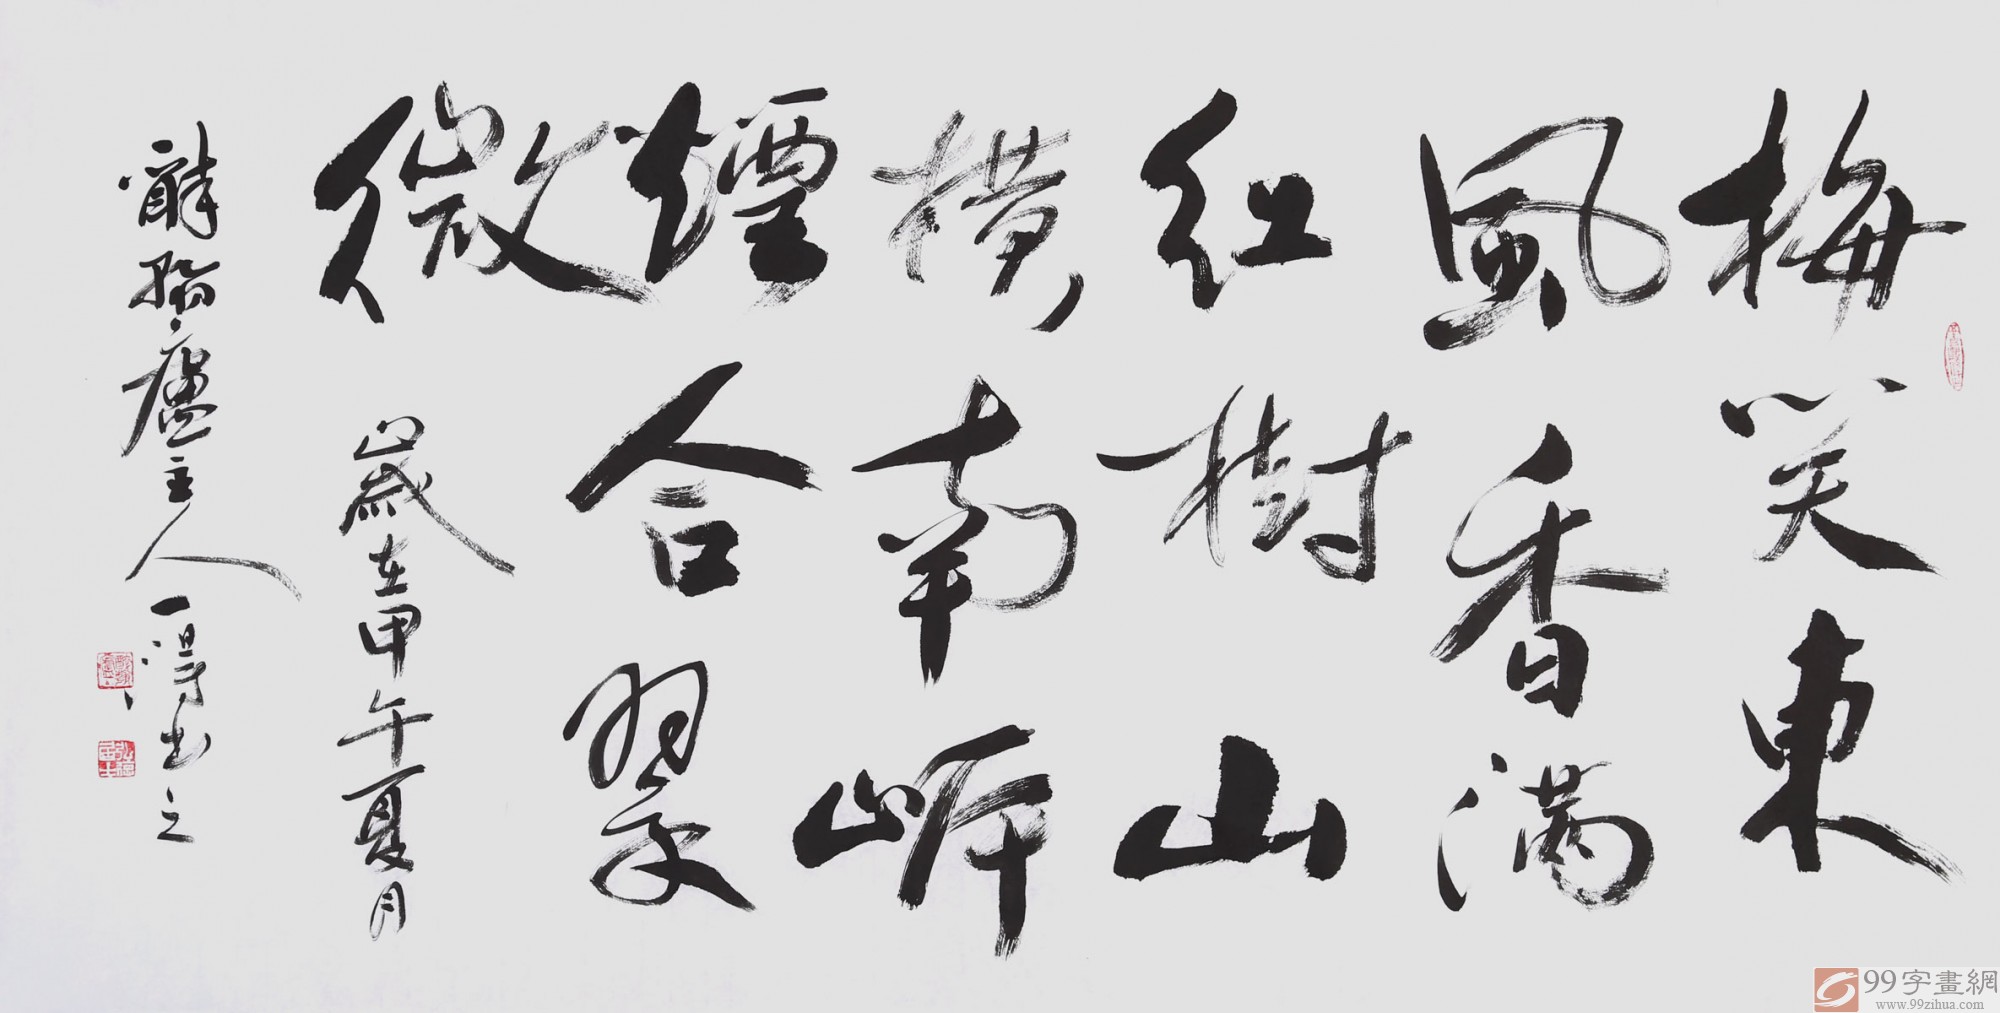 梅笑東
風香满
红樹山
横南岍
煙合翠
微 歲在甲午夏月
主人一得书之
99字畫網
www.99zihua.com